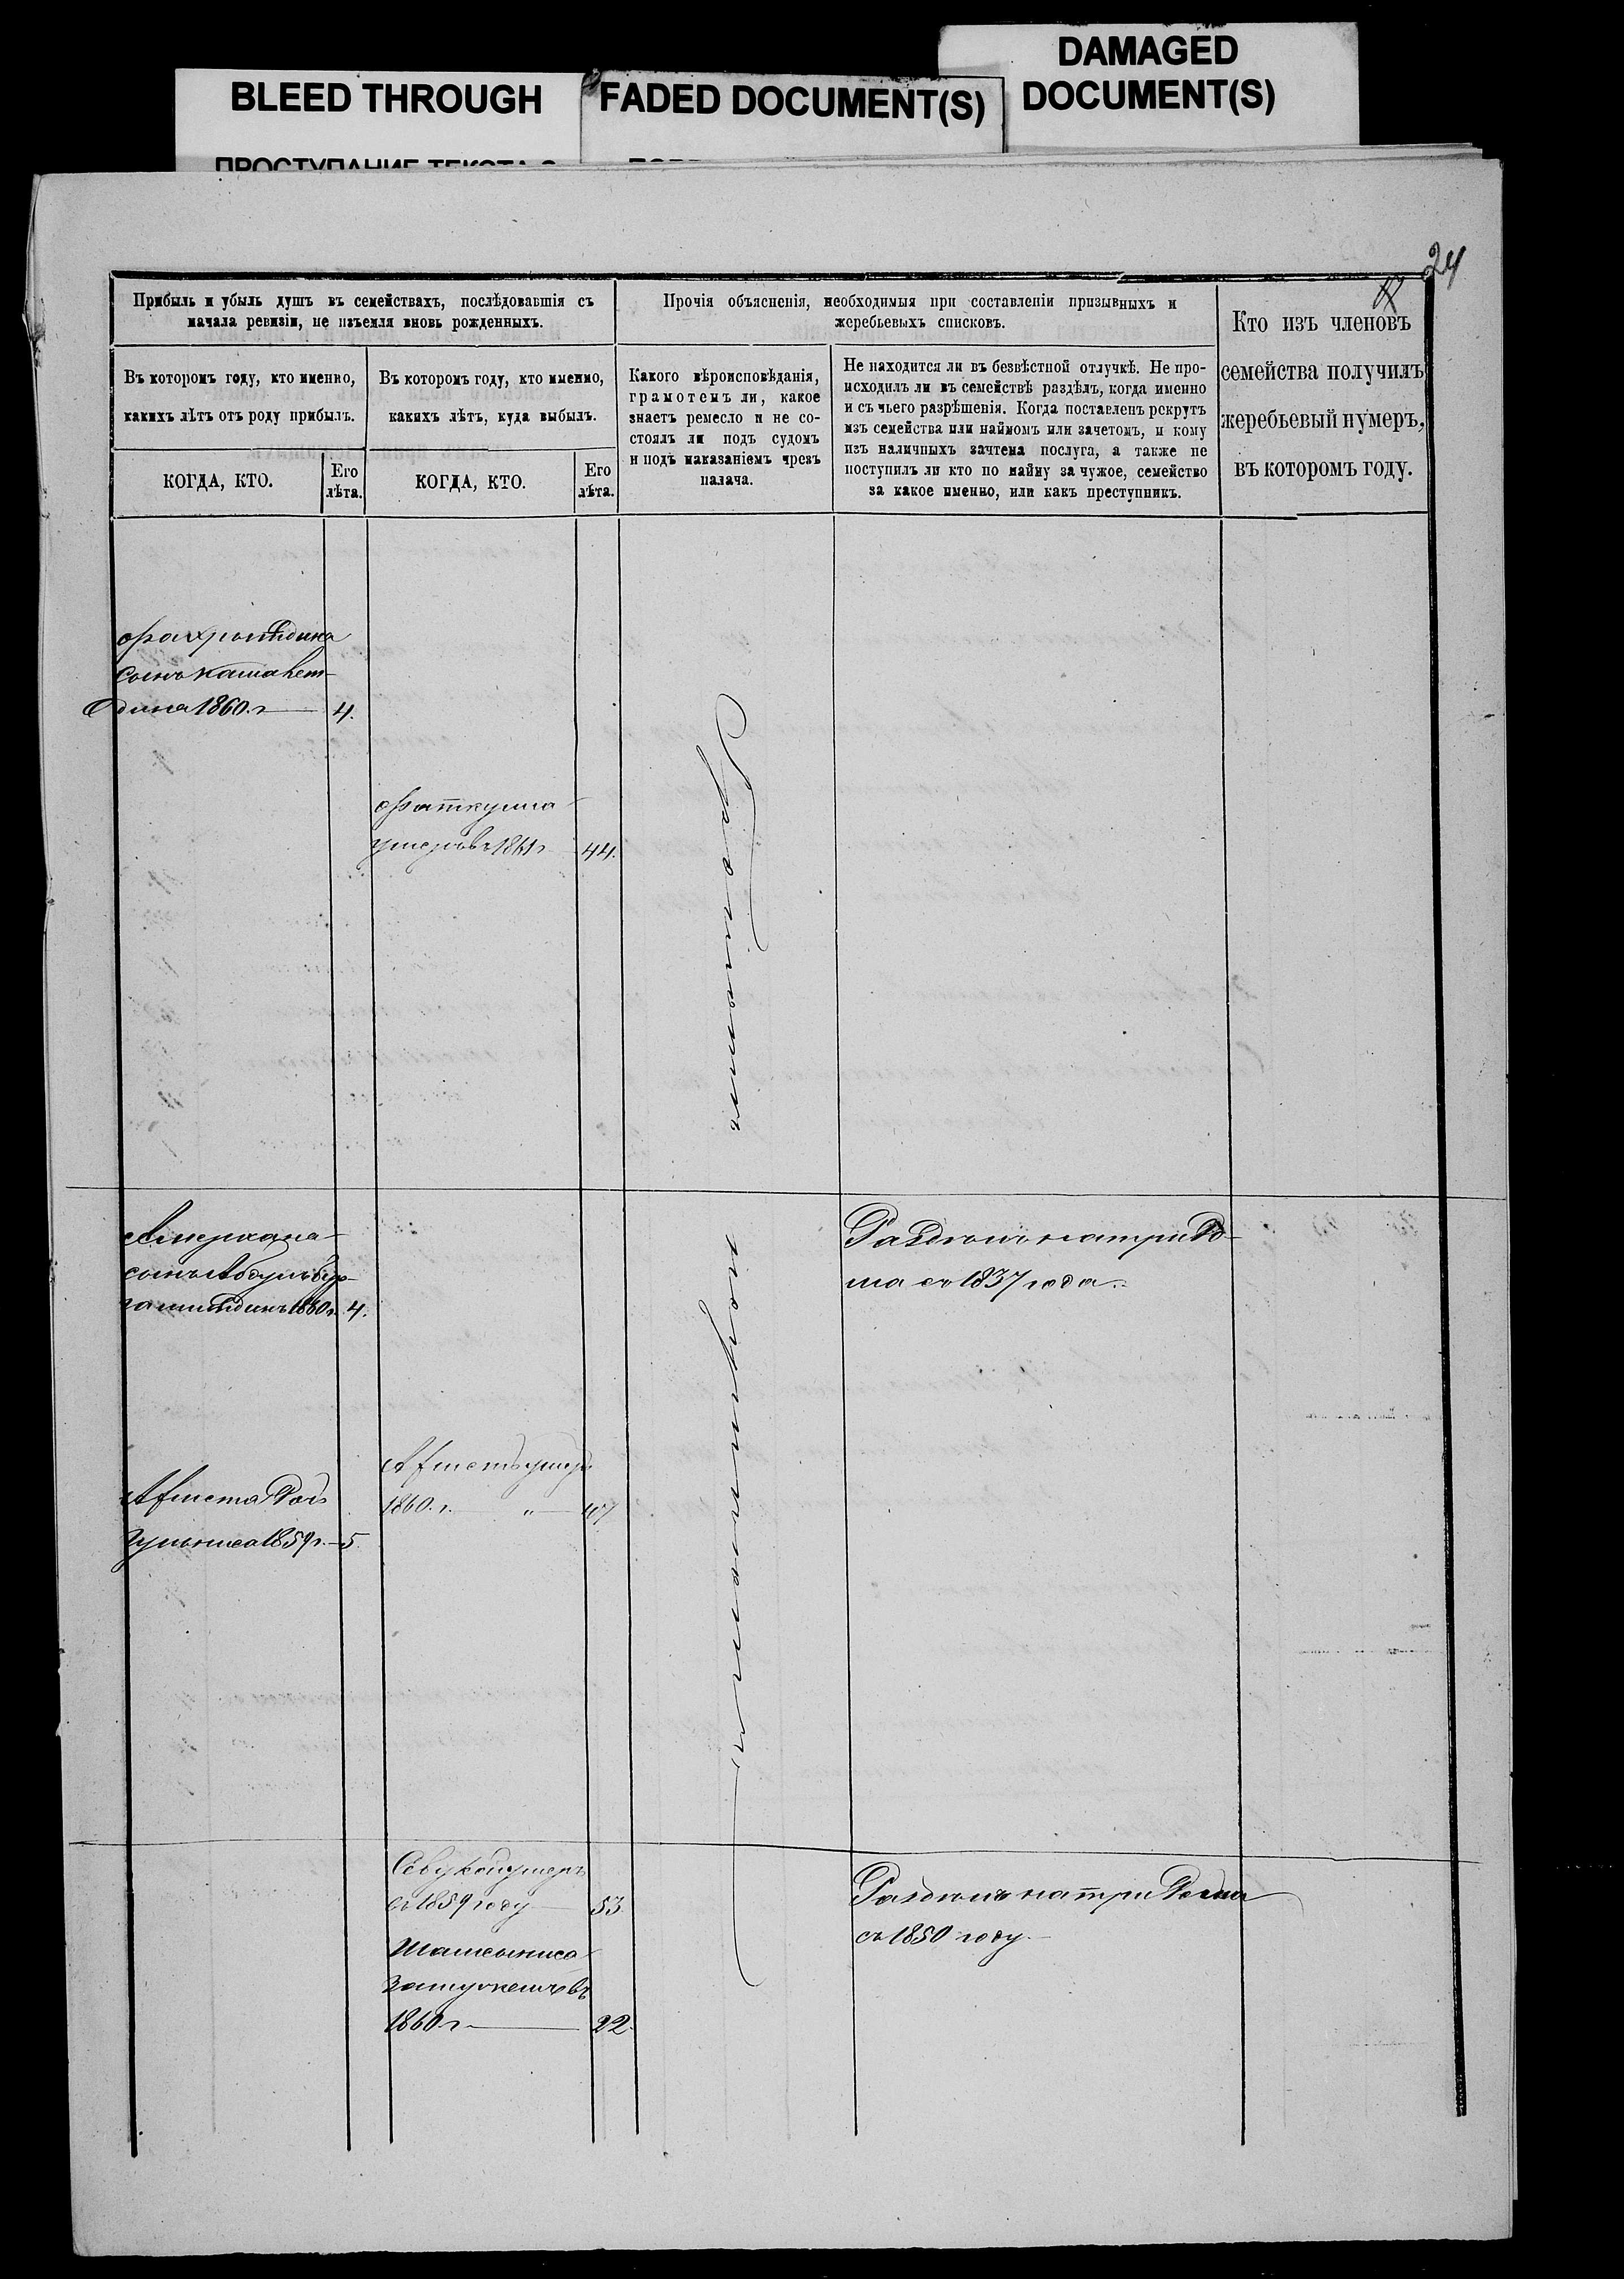 BLEED THROUGH
FADED DOCUMENT(S)
DAMAGED
DOCUMENT(S)
24
Прибыль и убыль душъ въ семействахъ, послѣдовавшія съ
начала ревизіи, не изъемля вновь рожденныхъ.
Въ которомъ году, кто именно,
какихъ лѣтъ отъ роду прибылъ.
КОГДА, КТО.
Его
лѣта.
Въ которомъ году, кто именно,
какихъ лѣтъ, куда выбылъ.
КОГДА, КТО.
Его
лѣта.
Прочія объясненія, необходимыя при составленіи призывныхъ и
жеребьевыхъ списковъ.
Какого вѣроисповѣданія,
грамотенъ ли, какое
знаетъ ремесло и не со-
стоялъ ли подъ судомъ
и подъ наказаніемъ чрезъ
палача.
Не находится ли въ безвѣстной отлучкѣ. Не про-
исходилъ ли въ семействѣ раздѣлъ, когда именно
и съ чьего разрѣшенія. Когда поставленъ рекрутъ
изъ семейства или наймомъ или зачетомъ, и кому
изъ наличныхъ зачтена послуга, а также не
поступилъ ли кто по найму за чужое, семейство
за какое именно, или какъ преступникъ.
Кто изъ членовъ
семейства получилъ
жеребьевый нумеръ,
въ которомъ году.
сынъ
дина 1860 г. 4.
Фаткулла
умеръ въ 1861 г 44.
сынъ
1860 г. 4.
Раздѣлъ на три до-
ма съ 1837 года.
умеръ
1860 г. 47
1859 г. 5
магометанской
умеръ
въ 1859 году 53
замужемъ въ
1860 г 22.
Раздѣлъ на три дома
съ 1850 году